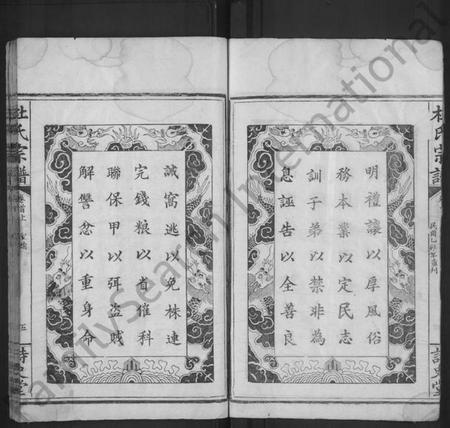 杜氏宗譜
民國乙卯年重刊
詩史堂
明禮讓以厚風俗
務本業以定民志
訓子弟以禁非為
息誣告以全善良
誡窩逃以免株連
完錢粮以省催科
聯保甲以弭盜賊
解讐忿以重身命
杜氏宗譜
卷首上
五
詩史堂
FamilySearch International